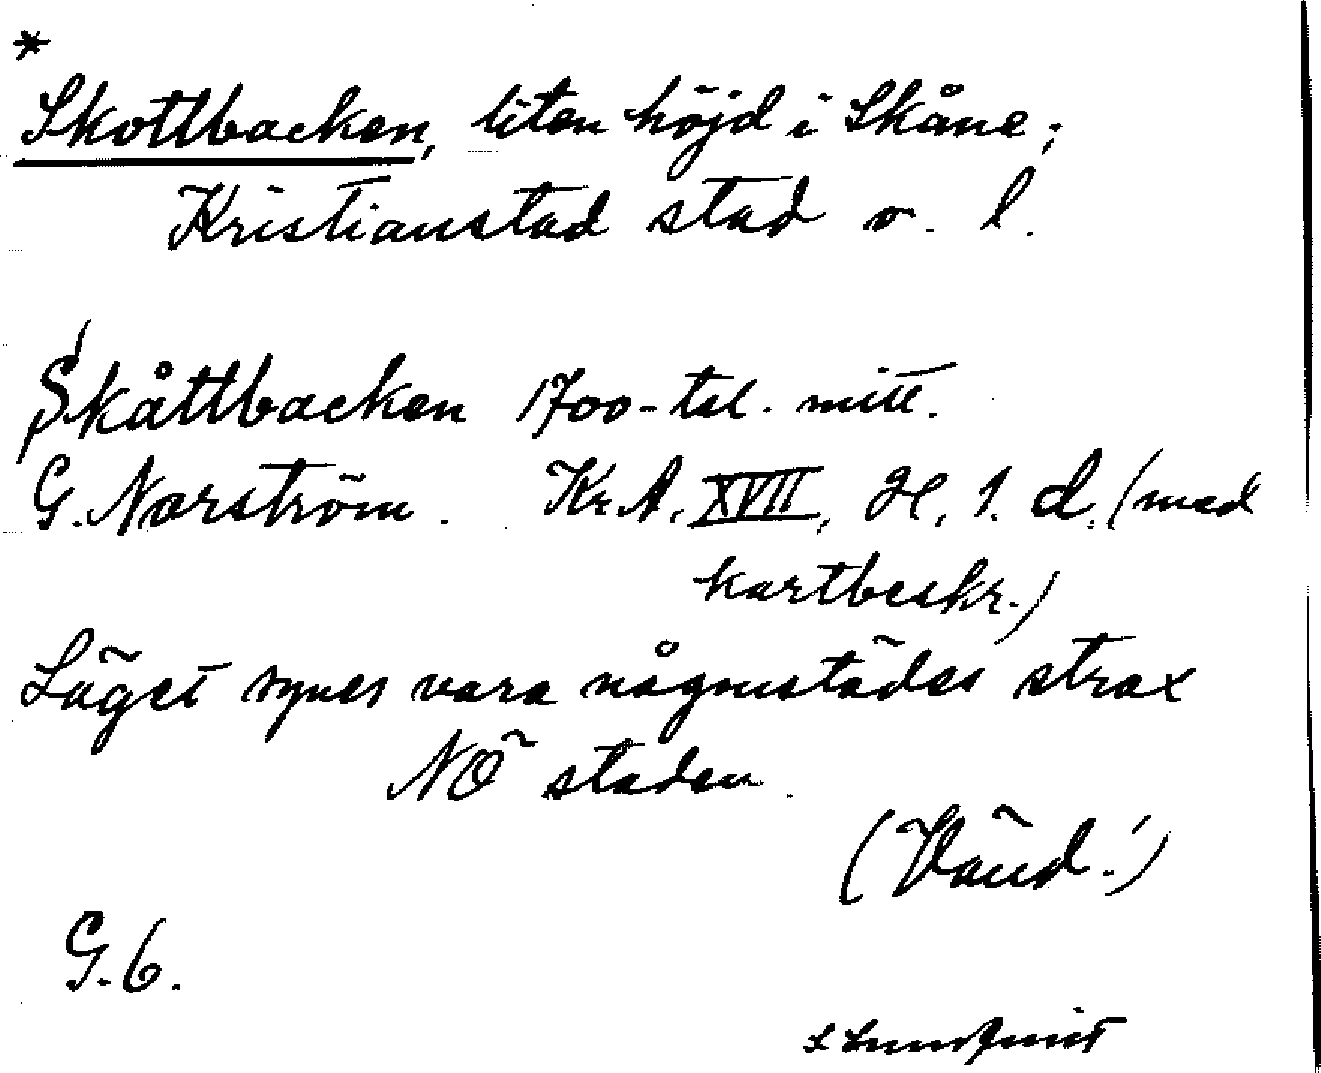 *
Skottbacken, liten höjd i Skåne;
Kristianstad stad o. l.
Skåttbacken 1700-tal. mitt.
G. Norström. Kr.A. XVII, H, 1. d. (med
kartbeskr.)
Läget synes vara någonstädes strax
NÖ staden.
(Vänd!)
G. 6.
S Lundquist